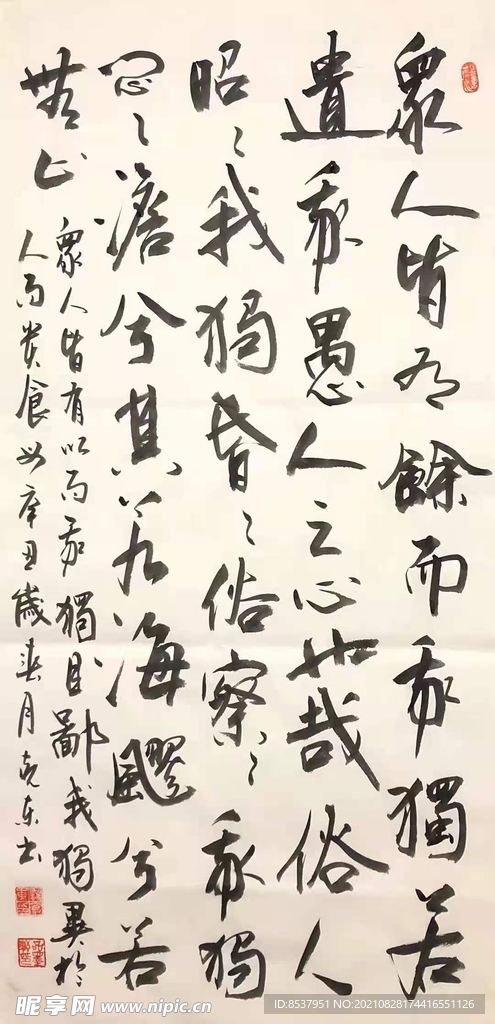 衆人皆有餘而我獨若
遺我愚人之心也哉俗人
昭〻我獨昏〻俗察〻我獨
悶〻澹兮其若海飂兮若
無止
衆人皆有以而我獨頑且鄙我獨異於
人而貴食母辛丑歲春月克東书
昵享网 www.nipic.cn
ID:8537951 NO:20210828174416551126